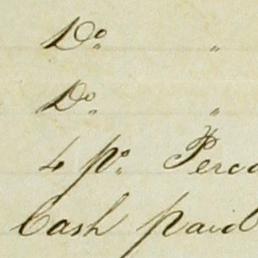 Do "
Do "
4 ps Perca
Cash paid